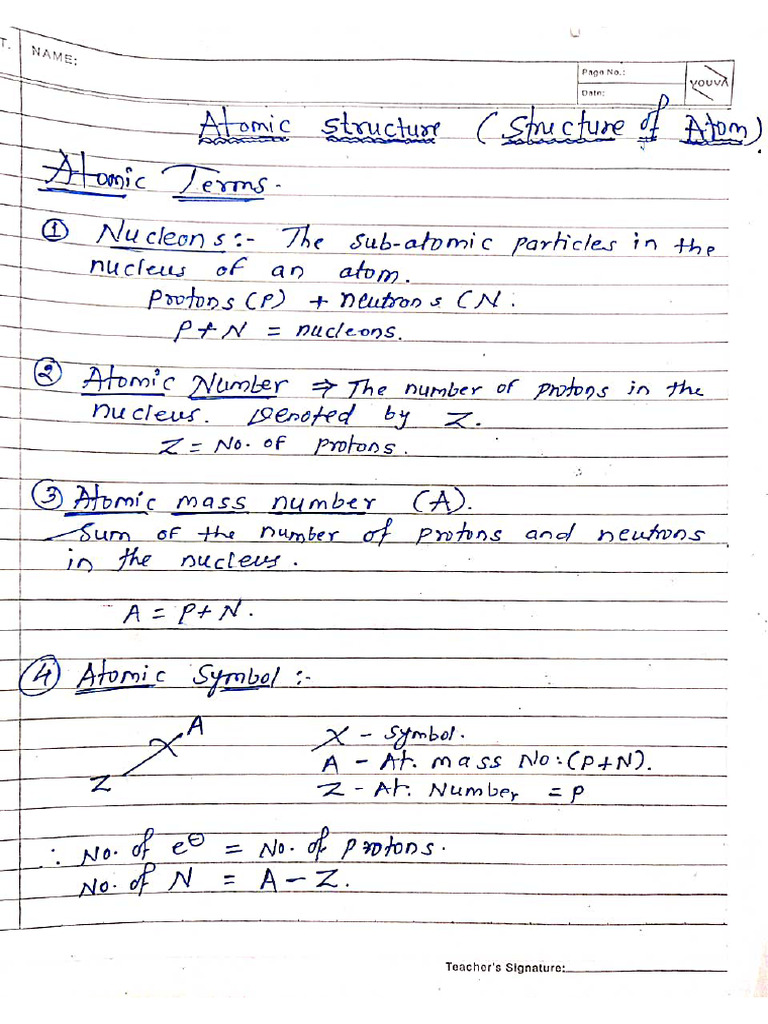 T.
NAME:
Page No.:
YOUVA
Date:
Atomic structure (structure of Atom).
Atomic Terms.
① Nucleons:- The sub-atomic particles in the
nucleus of an atom.
Protons (P) + neutrons (N:
P+N = nucleons.
② Atomic Number ⇒ The number of protons in the
nucleus. Denoted by Z.
Z = No. of protons.
③ Atomic mass number (A).
Sum of the number of protons and neutrons
in the nucleus.
A = P+N.
④ Atomic Symbol :-
A
X
Z
X - Symbol.
A - At. mass No:(P+N).
Z - At. Number = P
∴ No. of e⊖ = No. of protons.
No. of N = A-Z.
Teacher's Signature: